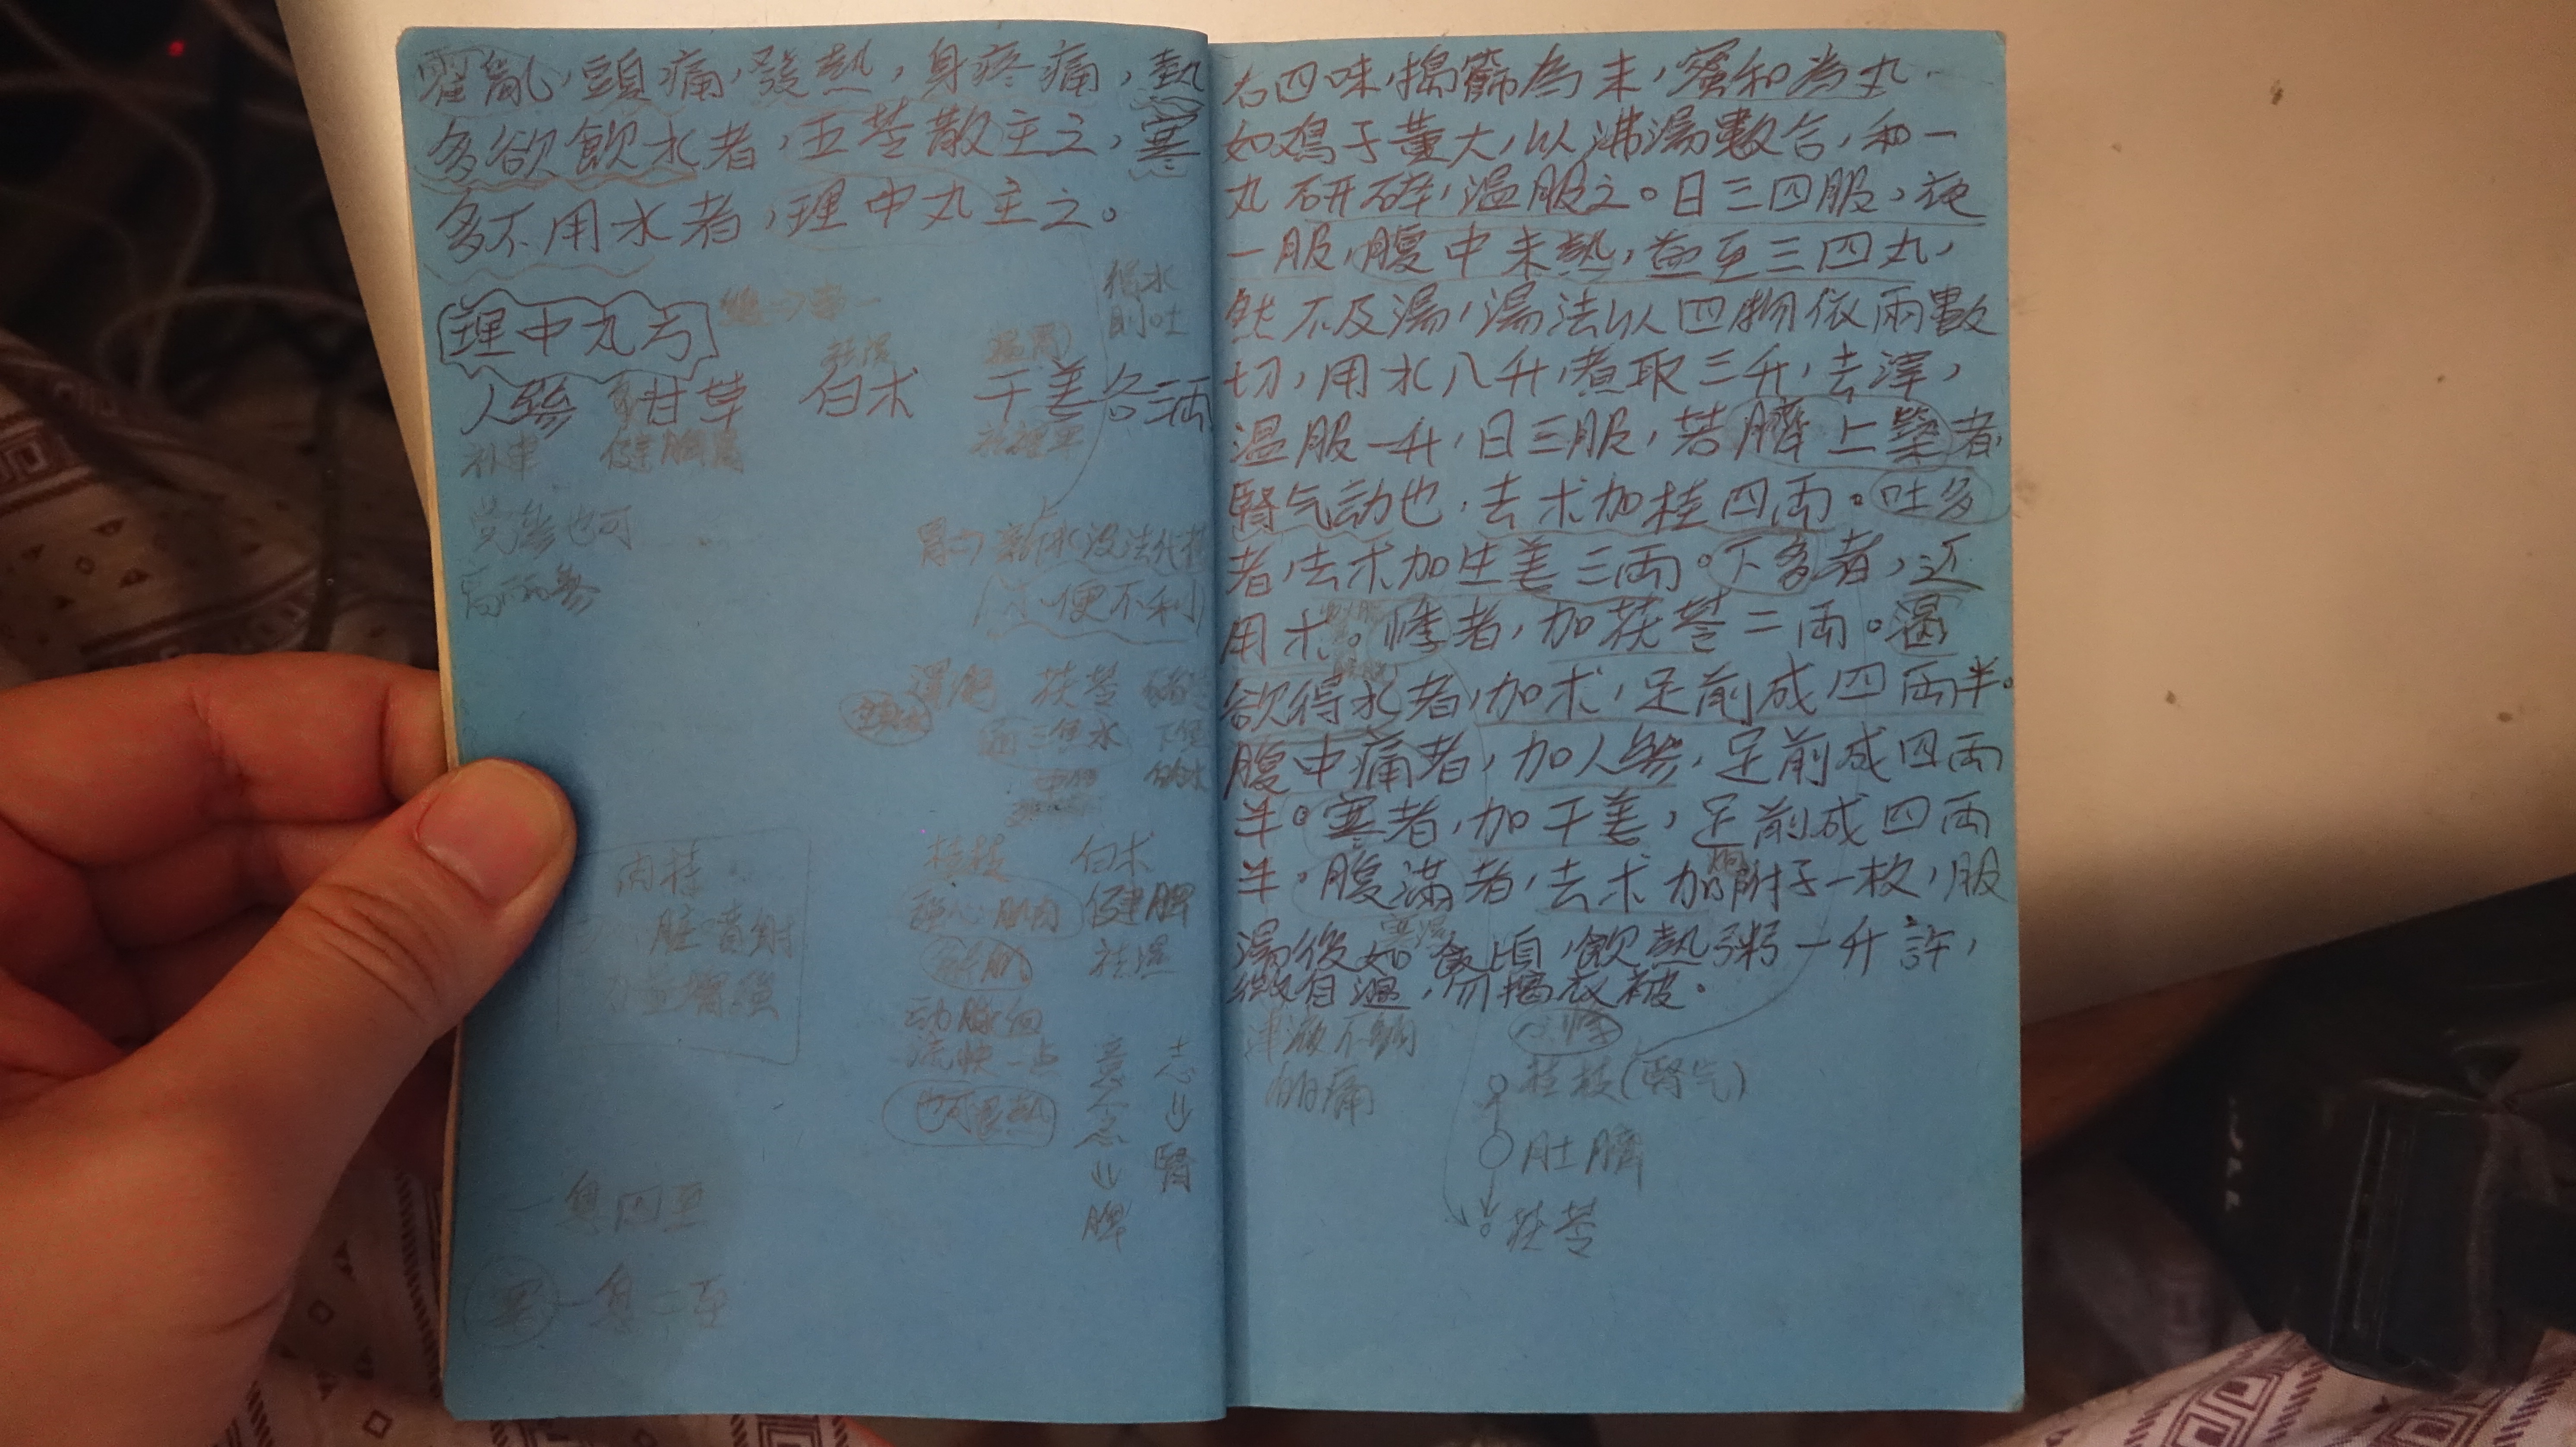 霍亂，頭痛，發熱，身疼痛，熱
多欲飲水者，五苓散主之，寒
多不用水者，理中丸主之。
得水
則吐
理中丸方
祛濕
溫胃
人參 炙甘草 白术 干姜各三兩
健脾胃
党參也可
高丽參
小便不利
茯苓
三焦水
下焦
的水
桂枝 白术
强心肌肉 健脾
解肌 祛濕
流快一点
意 志
念 腎
脾
肉桂
力量增强
一息四至
寒 一息二至
右四味，搗篩為末，蜜和為丸，
如鸡子董大，以沸湯數合，和一
丸研碎，溫服之。日三四服，夜
一服，腹中未熱，益至三四丸，
然不及湯，湯法以四物依兩數
切，用水八升，煮取三升，去滓，
溫服一升，日三服，若臍上築者
腎气动也，去术加桂四兩。吐多
者，去术加生姜三兩。下多者，还
用术。悸者，加茯苓二兩。渴
欲得水者，加术，足前成四兩半。
腹中痛者，加人參，足前成四兩
半。寒者，加干姜，足前成四兩
半。腹滿者，去术加附子一枚，服
湯後如食頃，飲熱粥一升許，
微自溫，勿揭衣被。
津液不夠 心悸
的痛 桂枝(腎气)
肚臍
茯苓